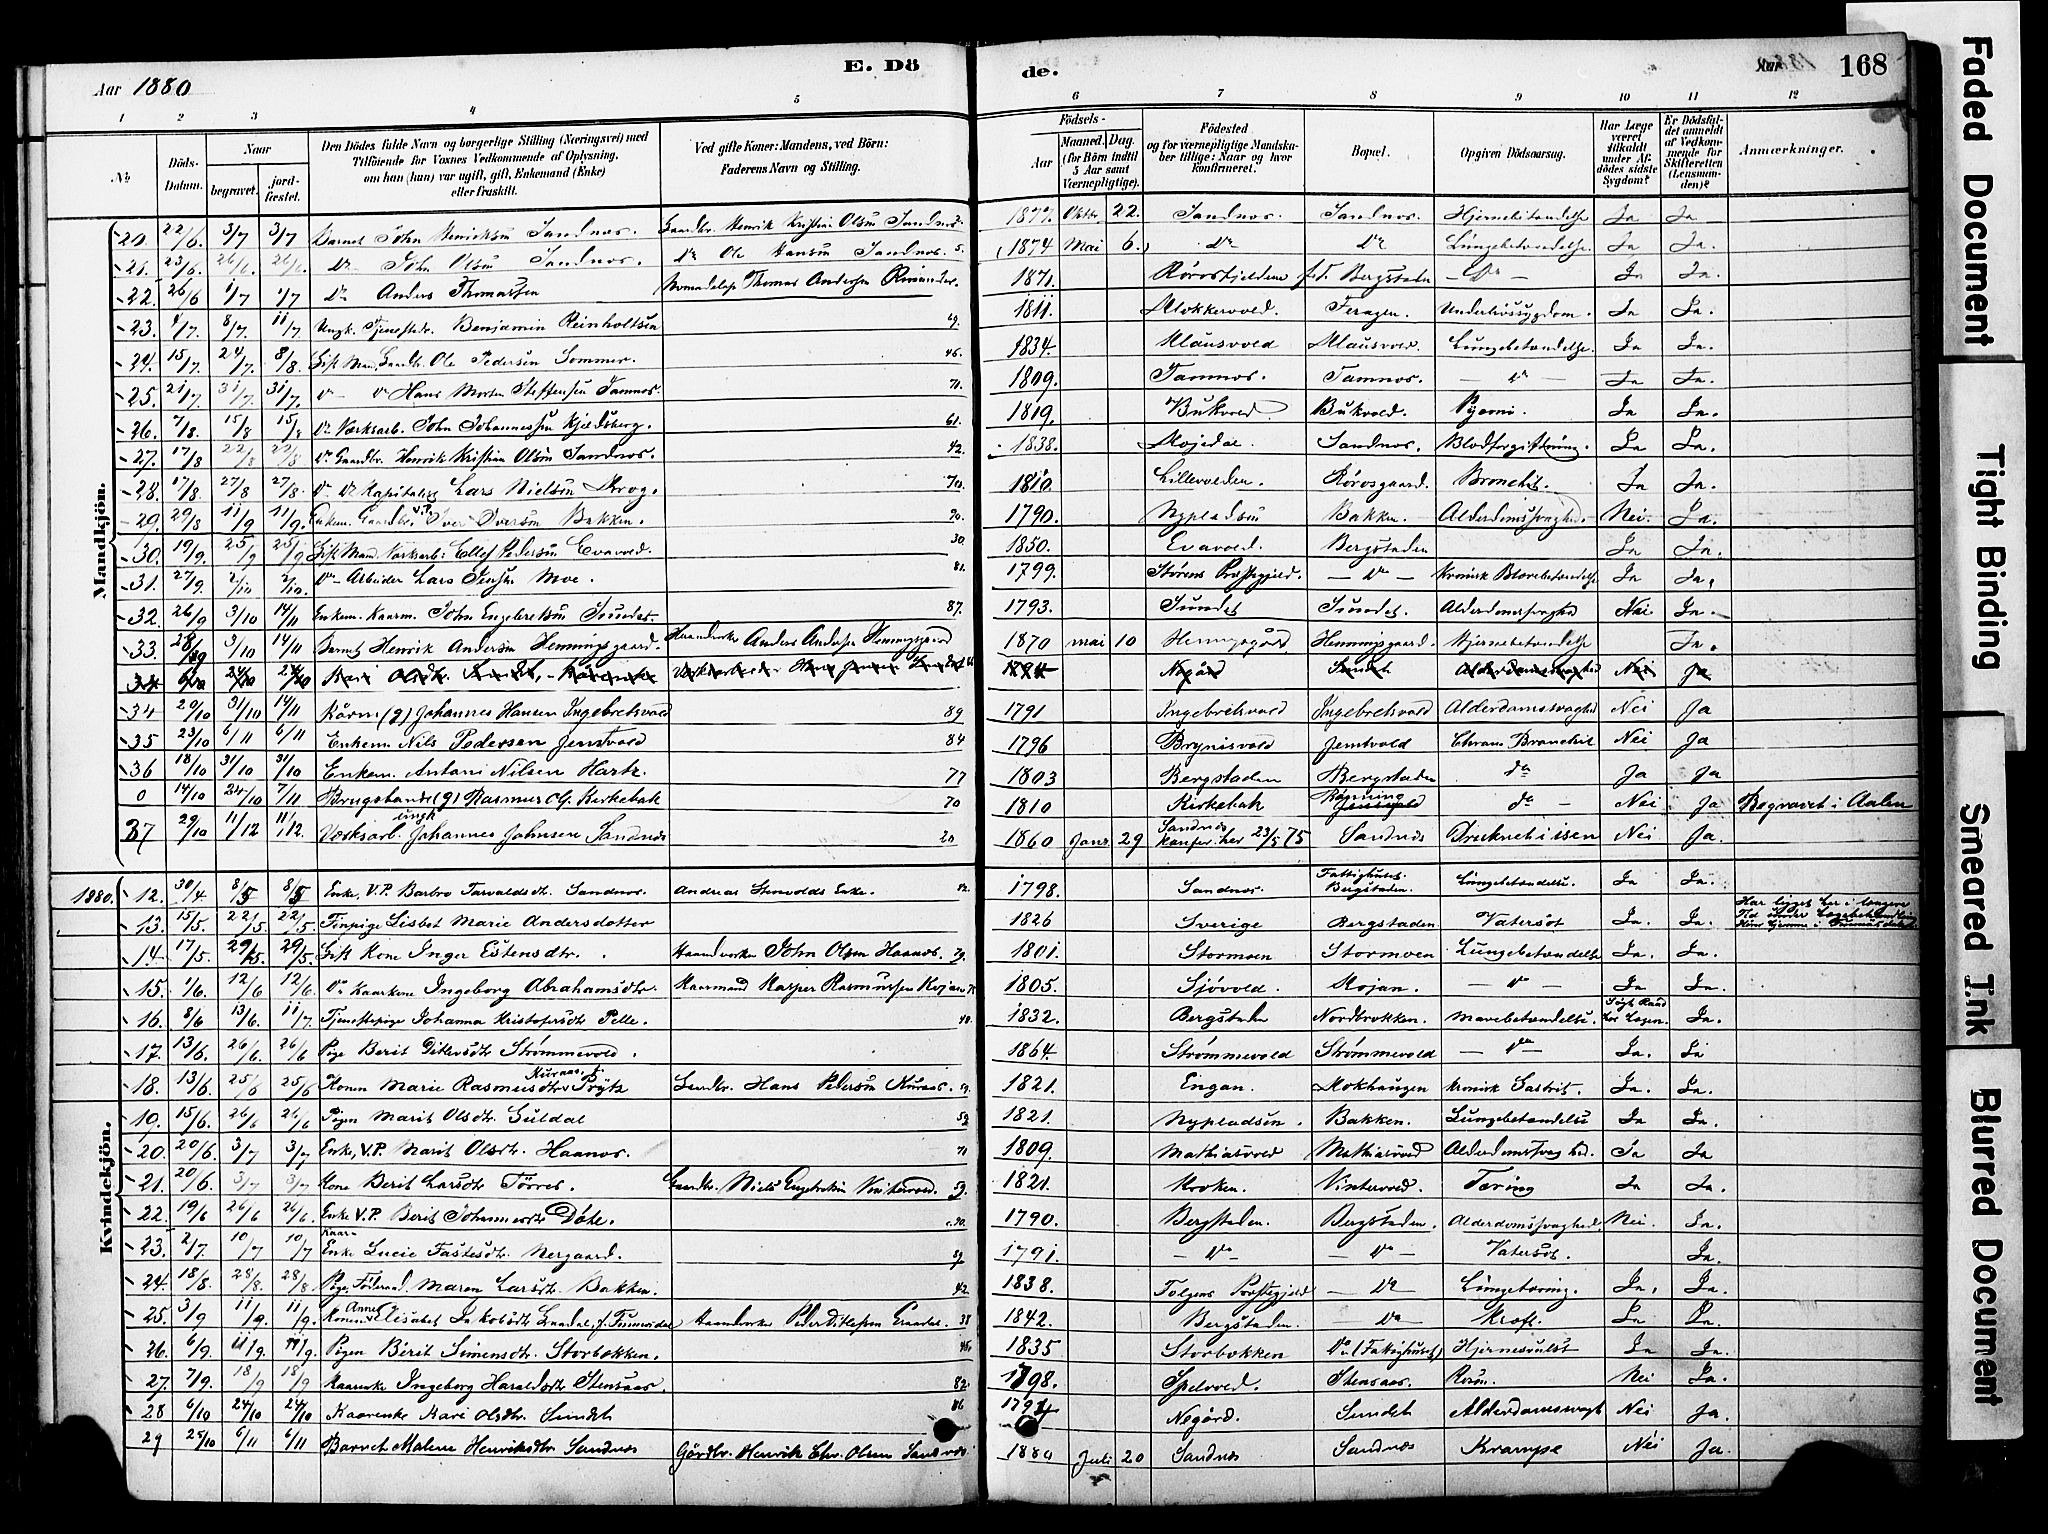 Aar 1880
E. Dö
de.
Aar
168
1 2 3 4 5 6 7 8 9 10 11 12
No
Döds-Datum.
Naar
begravet.
jord-fæstet.
Den Dödes fulde Navn og borgerlige Stilling (Næringsvei) med
Tilföiende for Voxnes Vedkommende af Oplysning,
om han (hun) var ugift, gift, Enkemand (Enke)
eller fraskilt.
Ved gifte Koner: Mandens, ved Börn:
Faderens Navn og Stilling.
Födsels-
Aar
Maaned. Dag.
(for Börn indtil
5 Aar samt
Værnepligtige).
Födested
og for værnepligtige Mandska-
ber tillige: Naar og hvor
konfirmeret.
Bopæl.
Opgiven Dödsaarsag.
Har Læge
været
tilkaldt
under Af-
dödes sidste
Sygdom?
Er Dödsfal-
det anmeldt
af Vedkom-
mende for
Skifteretten
(Lensman-
den)?
Anmærkninger.
Mandkjön.
20. 22/6 3/7 3/7 Barnet John Henriksen Sandnes. Gaardbr. Henrik Kristian Olsen Sandnes 2. 1877. Oktbr 22. Sandnes. Sandnes. Hjernebetændelse Ja Ja
21. 23/6 26/6. 26/6. Do John Olsen Sandnes. Do Ole Hansen Sandnes. 5. 1874 Mai 6. Do Do Lungebetændelse. Ja Ja.
22. 26/6 1/7 1/7 Do Anders Thomassen Nomadelap Thomas Andersen 1871. Rørosfjeldene Bergstaden Do Ja Ja.
23. 4/7. 8/7. 11/7 Ungk. Tjenestedr. Benjamin Reinholtsen 69. 1811. Klokkervold Feragen. Underlivssygdom. Ja Ja.
24. 15/7. 24/7. 8/8. Gift Mand, Gaardbr. Ole Pedersen Sommer. 46. 1834. Klausvold Klausvold. Lungebetændelse. Ja Ja.
25. 21/7. 31/7. 31/7. Do Do Hans Morten Steffensen Tamnes. 71. 1809. Tamnes. Tamnes. Do Ja Ja.
26. 7/8. 15/8 15/8 Do Værksarb. John Johannessen Kjeldsberg. 61. 1819. Bukvold Bukvold. Pyæmi. Ja Ja.
27. 17/8 22/8 22/8 Do Gaardbr. Henrik Kristian Olsen Sandnes. 42. 1838. Sandnes. Blodforgiftning. Ja Ja.
28. 17/8. 27/8 27/8. Do Do Kapitalist Lars Nielsen Krog. 70. 1810. Lillevolden. Rørosgaard. Bronchit. Ja Ja.
29. 29/8 11/9 11/9. Enkem. Gaardbr. V.P. Iver Iversen Bakken. 90. 1790. Nypladsen Bakken. Alderdomssvaghed. Nei. Ja.
30. 19/9. 25/9 25/9 Gift Mand Værksarb. Ellef Pedersen Evavold. 30. 1850. Evavold. Bergstaden Ja Ja.
31. 27/9. 2/10 2/10. Do Arbeider Lars Jensen Moe. 81. 1799. Størens Præstegjeld. Do Kronisk Blærebetændelse Ja Ja.
32. 26/9 3/10 14/11 Enkem. Kaarm. John Engebretsen Sundet. 87. 1793. Sundet Sundet. Alderdomssvaghed Nei Ja.
33. 28/9 3/10 14/11 Barnet Henrik Andersen Hemmingsgaard. Haandverker Anders Andersen Hemmingsgaard 1870 mai 10 Hemmingsgård Hemmingsgaard. Hjernebetændelse Ja.
34 6/10 24/10 24/10 Kari Olsdtr. Sundet, Kårenke 1794 Negård Sundet Alderdomssvaghed Nei Ja
34 29/10 31/10 14/11 Kårm (g) Johannes Hansen Ingebretsvold 89 1791 Ingebretsvold Ingebretsvold Alderdomssvaghed Nei Ja
35 23/10 6/11 6/11 Enkem. Nils Pedersen Jensvold 84 1796 Brynisvold Jensvold Chron. Bronchit Nei Ja
36 18/10 31/10 31/10 Enkem. Antoni Nilsen Hartz. 77 1803 Bergstaden Bergstaden do Ja Ja
0 14/10 24/10 7/11 Brugsband (g) Rasmus O. Kirkebak 70 1810 Kirkebak do Nei Ja Begravet i Aalen
37 29/10 11/12 11/12. Værksarb. ungk Johannes Johnsen Sandnes 20 1860 Janr. 29 Sandnes Konfir. her 23/5 75 Sandnes Druknet i isen Nei Ja.
Kvindekjön.
1880. 12. 30/4 8/5 8/5 Enke, V.P. Barbro Tarvaldsdtr. Sandnes. Andreas Stenvolds Enke. 82. 1798. Sandnes. Fattighuset Bergstaden. Lungebetændelse. Ja Ja
13. 15/5. 22/5. 22/5. Finpige Lisbet Marie Andersdatter 1826 Sverige Bergstaden Vatersot Ja. Ja. Har ligget her i længere
Tid under Lægebehandling
14 17/5. 29/5. 29/5. Gift Kone Inger Estensdtr. Haandverker John Olsen Haanes. 79. 1801. Stormoen Stormoen Lungebetændelse Ja. Ja.
15. 1/6. 12/6 12/6. Do Kaarkone Ingeborg Abrahamsdtr. Kaarmand Kasper Rasmussen Kojan 75 1805. Sjøvold. Kojan. Do Ja Ja.
16. 8/6 13/6. 11/7. Tjenestepige Johanna Kristofersdtr Pelle. 48. 1832. Bergstaden Nordbrokken. Mavebetændelse. Søgt Raad hos Lægen. Ja.
17. 13/6. 26/6 26/6 Pige Berit Ditlevsdtr Strømmevold. 1864 Strømmevold Strømmevold Do Ja. Ja
18. 13/6. 25/6 25/6 Konen Marie Rasmusdtr Kuraas f. Prytz Gaardbr. Hans Pedersen Kuraas. 59. 1821. Engan. Mokhaugen Kronisk Gastrit. Ja. Ja.
19. 15/6. 26/6 26/6 Pigen Marit Olsdtr. Guldal 59 1821. Nypladsen. Bakken. Lungebetændelse Ja Ja.
20. 20/6. 3/7 3/7 Enke, V.P. Marit Olsdtr. Haanes. 71 1809. Mathiasvold Mathiasvold Alderdomssvaghed. Ja Ja
21. 20/6. 3/7 3/7 Kone Berit Larsdtr Tørres. Gaardbr. Niels Engebretsen Vintervold. 59. 1821. Kroken. Vintervold. Tæring Ja Ja.
22. 19/6 26/6 26/6. Enke V.P. Berit Johannesdtr Døte. c.90. 1790. Bergstaden. Bergstaden. Alderdomssvaghed. Nei. Ja.
23. 2/7. 10/7 10/7 Kaar-Enke Lucie Fastesdtr. Nergaard. 89 1791. Do Do Vatersot. Ja.
24. 18/8. 28/8. 28/8 Pige, Føderaad Maren Larsdtr. Bakken. 42. 1838. Tolgens Præstegjeld Do Lungetæring. Ja. Ja.
25. 3/9 11/9. 11/9. Konen Anne Elisabet Jakobsdtr Graadal, f. Finnesdal Haandverker Peder Ditlefsen Graadal. 38 1842. Bergstaden. Do Kræft. Ja Ja.
26. 6/9. 11/9. 11/9. Pigen Berit Simensdtr. Storbækken. 45. 1835 Storbækken Do (Fattighuset) Hjernesvulst Ja Ja.
27. 7/9. 18/9 18/9 Kaarenke Ingeborg Haraldsdtr Stensaas. 82. 1798. Spelvold. Stensaas. Nei Ja.
28 6/10 24/10 24/10 Kaarenke Kari Olsdtr. Sundet 86 1794 Negård. Sundet Alderdomssvagh Nei Ja.
29 25/10 6/11 6/11 Barnet Malene Henriksdtr. Sandnes Gårdbr. Henrik Chr. Olsen Sandnes 1880 Juli 20 Sandnes Sandnes Krampe Nei Ja.
Faded Document
Tight Binding
Smeared Ink
Blurred Document